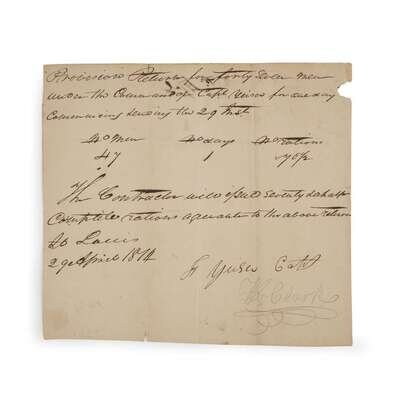 Provision Return for forty Seven men
under the Command of Capt Yeiser for one day
Commencing &ending the 29 Inst
No Men No days No rations
47 1 70½
The Contractor will issue Seventy &ahalf
Complete rations agreeable to the above return
St Louis
29 April 1814
F Yeiser Capt
Wm Clark